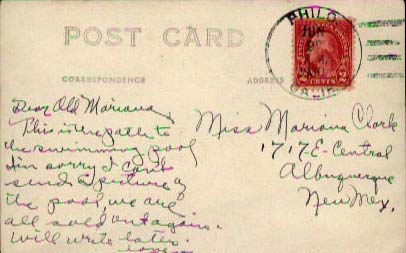 POST CARD
CORRESPONDENCE
ADDRESS
PHILO
JUN
PM
CALIF.
2 CENTS 2
Dear Old Mariana,
This is the path to
the swimming pool
I'm sorry I can't
send a picture of
the pool, we are
all sold out again.
Will write later.
Miss Mariana Clark
1717 E- Central
Albuquerque
New Mex.